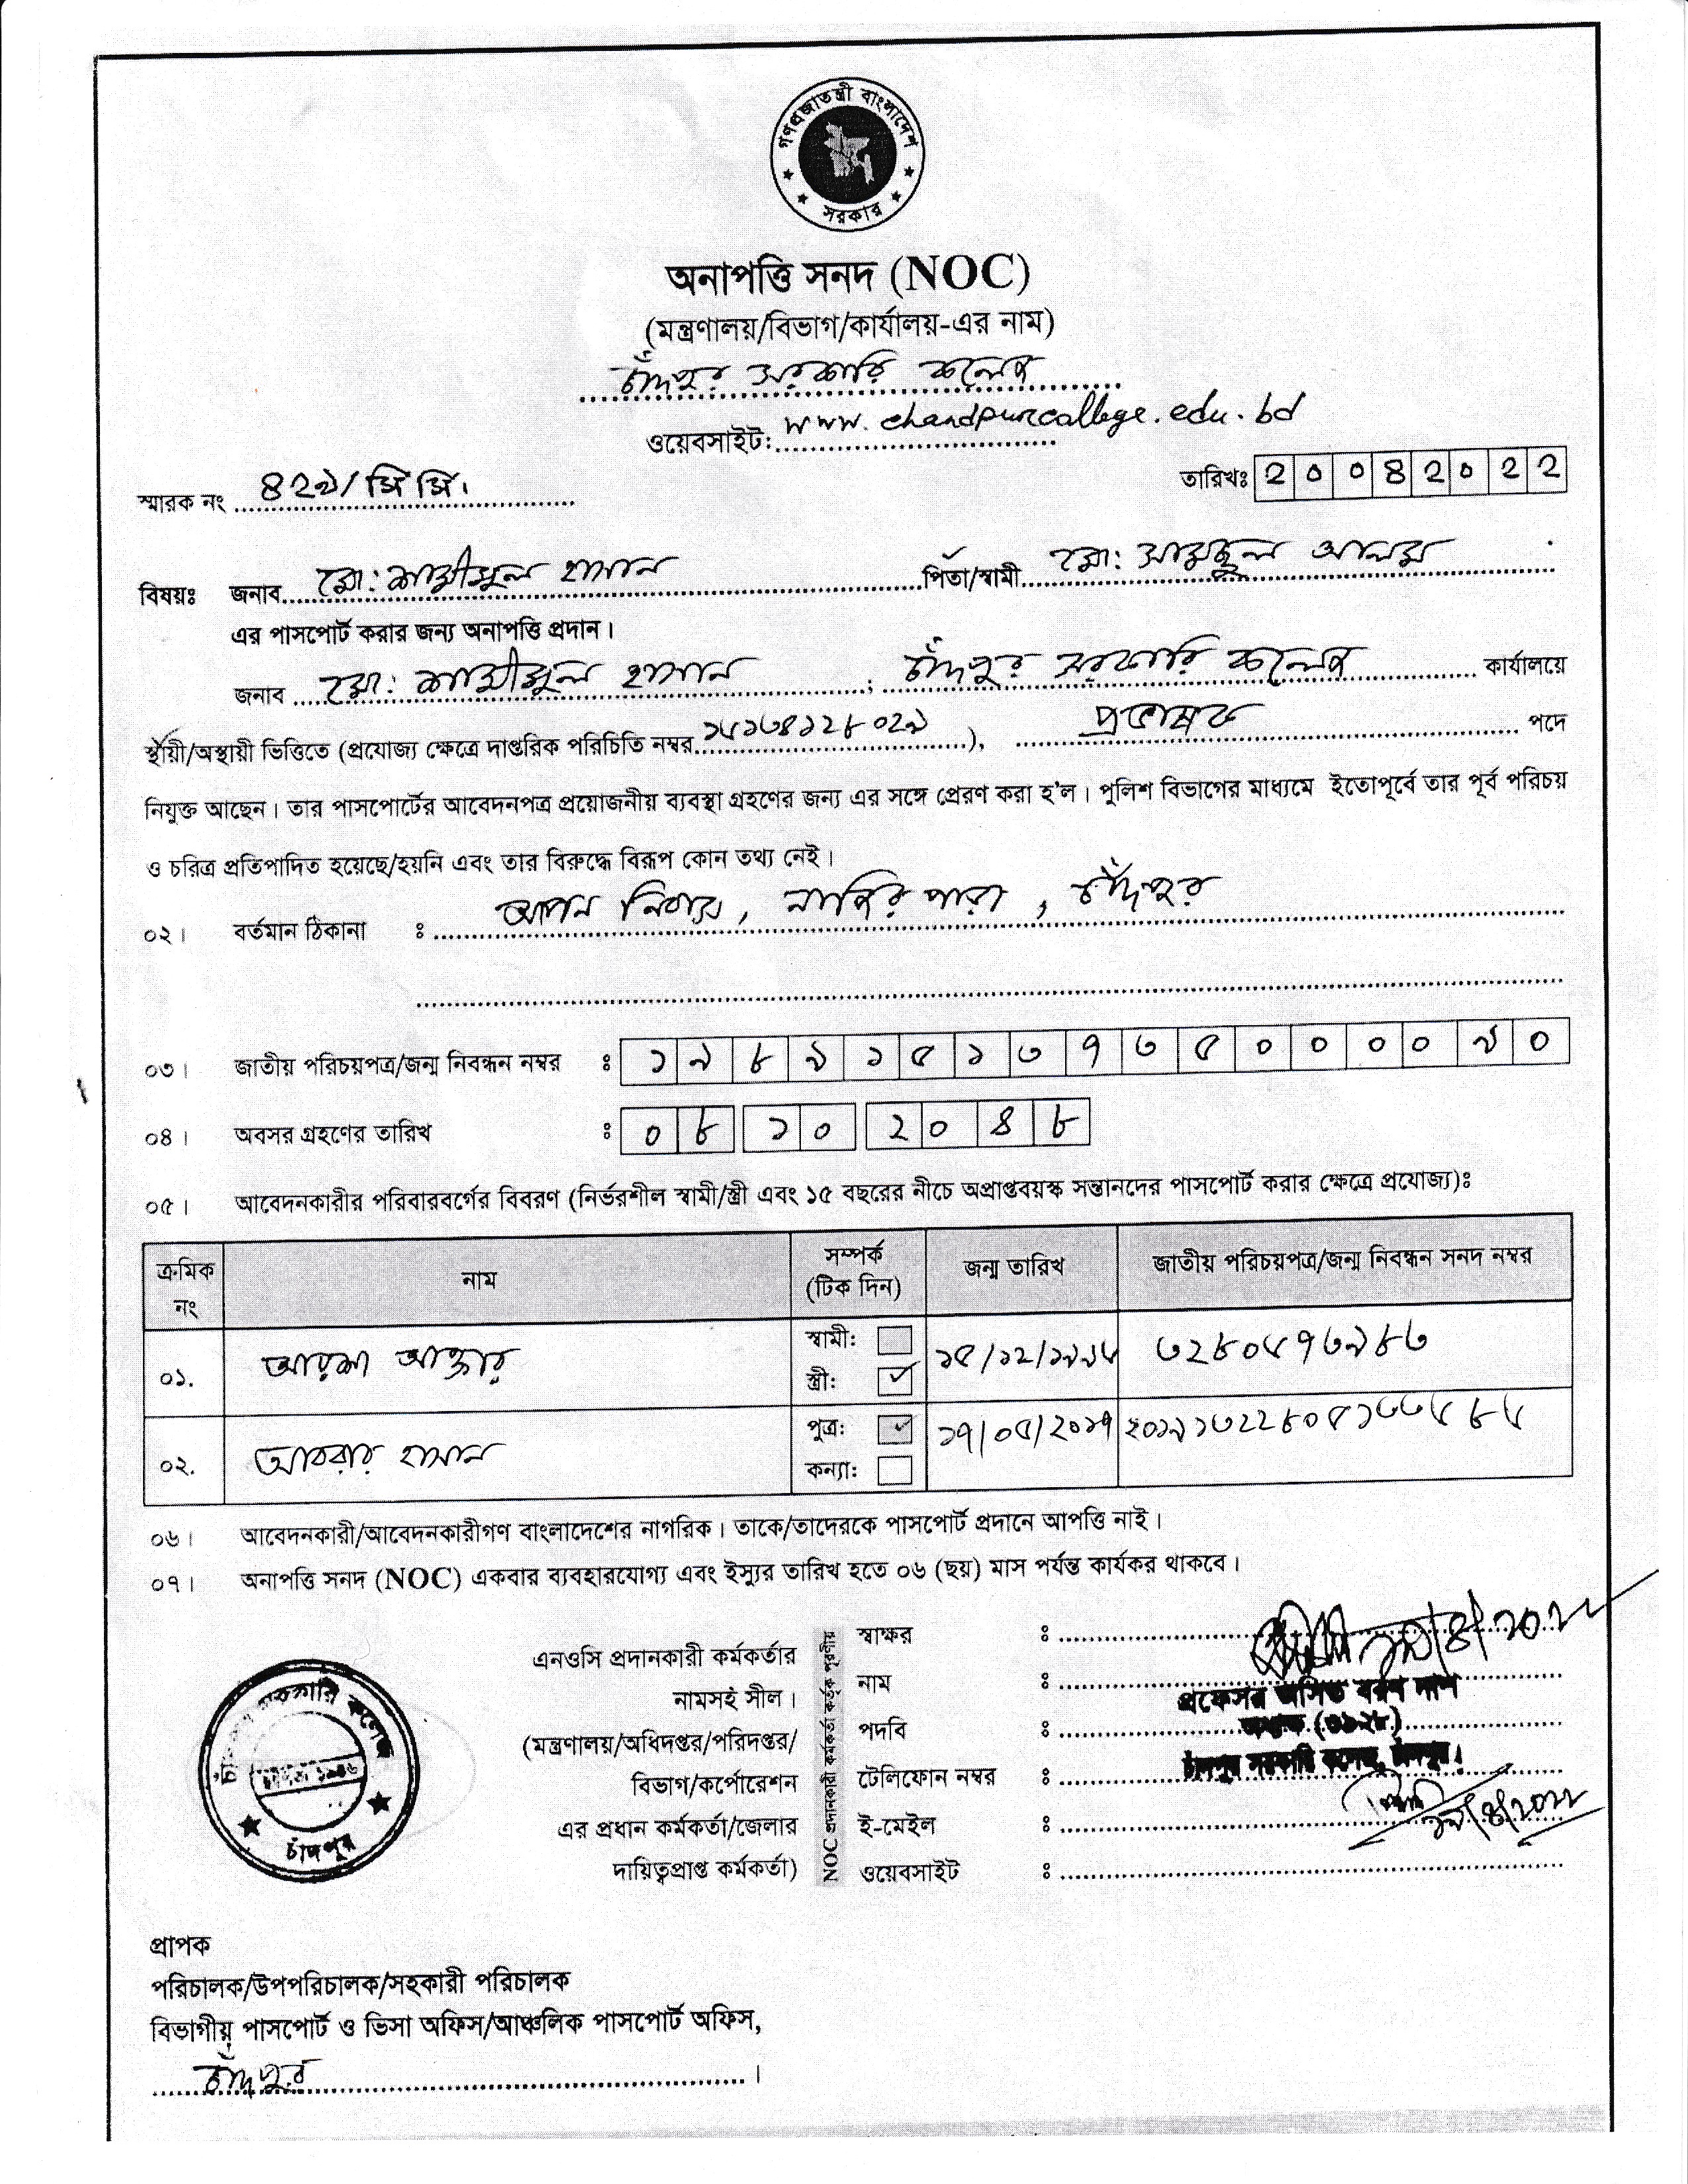 গণপ্রজাতন্ত্রী বাংলাদেশ
সরকার
অনাপত্তি সনদ (NOC)
(মন্ত্রণালয়/বিভাগ/কার্যালয়-এর নাম)
চাঁদপুর সরকারি কলেজ
ওয়েবসাইট: www.chandpurcollege.edu.bd
স্মারক নং ৪২৯/সি সি। তারিখঃ ২০০৪২০২২
বিষয়ঃ জনাব মো: শামীমুল হাসান পিতা/স্বামী মো: আলম
এর পাসপোর্ট করার জন্য অনাপত্তি প্রদান।
জনাব মো: শামীমুল হাসান ; চাঁদপুর সরকারি কলেজ কার্যালয়ে
স্থায়ী/অস্থায়ী ভিত্তিতে (প্রযোজ্য ক্ষেত্রে দাপ্তরিক পরিচিতি নম্বর), প্রভাষক পদে
নিযুক্ত আছেন। তার পাসপোর্টের আবেদনপত্র প্রয়োজনীয় ব্যবস্থা গ্রহণের জন্য এর সঙ্গে প্রেরণ করা হ'ল। পুলিশ বিভাগের মাধ্যমে ইতোপূর্বে তার পূর্ব পরিচয়
ও চরিত্র প্রতিপাদিত হয়েছে/হয়নি এবং তার বিরুদ্ধে বিরূপ কোন তথ্য নেই।
০২। বর্তমান ঠিকানা ঃ আপন নিবাস, নাজির পারা, চাঁদপুর
০৩। জাতীয় পরিচয়পত্র/জন্ম নিবন্ধন নম্বর ঃ ১৯৮৯১৫১৩৭৬৫০০০০৯০
০৪। অবসর গ্রহণের তারিখ ঃ ০৮ ১০ ২০৪৮
০৫। আবেদনকারীর পরিবারবর্গের বিবরণ (নির্ভরশীল স্বামী/স্ত্রী এবং ১৫ বছরের নীচে অপ্রাপ্তবয়স্ক সন্তানদের পাসপোর্ট করার ক্ষেত্রে প্রযোজ্য)ঃ
ক্রমিক নং নাম সম্পর্ক (টিক দিন) জন্ম তারিখ জাতীয় পরিচয়পত্র/জন্ম নিবন্ধন সনদ নম্বর
স্বামী:
০১. আয়শা আক্তার স্ত্রী: ✓
পুত্র: ✓
০২. আবরার হাসান কন্যা:
০৬। আবেদনকারী/আবেদনকারীগণ বাংলাদেশের নাগরিক। তাকে/তাদেরকে পাসপোর্ট প্রদানে আপত্তি নাই।
০৭। অনাপত্তি সনদ (NOC) একবার ব্যবহারযোগ্য এবং ইস্যুর তারিখ হতে ০৬ (ছয়) মাস পর্যন্ত কার্যকর থাকবে।
সরকারি কলেজ
চাঁদপুর
এনওসি প্রদানকারী কর্মকর্তার
নামসহ সীল।
(মন্ত্রণালয়/অধিদপ্তর/পরিদপ্তর/
বিভাগ/কর্পোরেশন
এর প্রধান কর্মকর্তা/জেলার
দায়িত্বপ্রাপ্ত কর্মকর্তা)
NOC প্রদানকারী কর্মকর্তা কর্তৃক পূরণীয়
স্বাক্ষর ঃ
নাম ঃ প্রফেসর অসিত বরণ দাশ
পদবি ঃ অধ্যক্ষ (৩৯২৮)
টেলিফোন নম্বর ঃ চাঁদপুর সরকারি কলেজ, চাঁদপুর।
ই-মেইল ঃ
ওয়েবসাইট ঃ
প্রাপক
পরিচালক/উপপরিচালক/সহকারী পরিচালক
বিভাগীয় পাসপোর্ট ও ভিসা অফিস/আঞ্চলিক পাসপোর্ট অফিস,
চাঁদপুর।